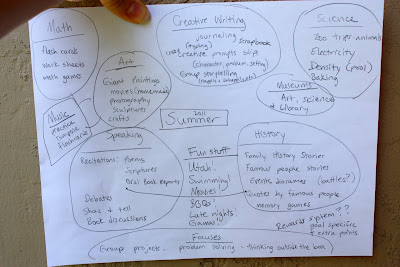 Math
flash cards
work sheets
math games
Creative Writing
journaling
(typing)
scrapbook
creative prompts
(character, problem, setting)
Group storytelling
Science
Zoo trips-animals
Electricity
Density (pool)
Baking
Art
Giant Paintings
movies (homemade)
photography
sculptures
crafts
Museums
Art, science
+ Library
Music
practice
compose
flashcards
2011
Summer
Speaking
Recitations: Poems
Scriptures
Oral Book Reports
Debates
Show & tell
Book discussions
Fun stuff
Utah!
Swimming!
Movies!
BBQs!
Late nights!
Games!
History
Family History Stories
Famous people stories
Events, dioramas (battles?)
Quotes by famous people
memory games
Rewards system??
goal specific
+ extra points
Focuses
Group projects - problem solving - thinking outside the box